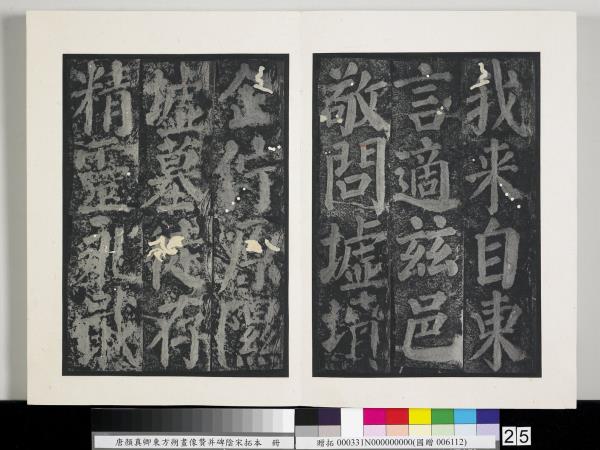 我来自東
言適兹邑
敬問墟墳
企佇原隰
墟墓徒存
精靈永戢
唐顏真卿東方朔畫像贊并碑陰宋拓本 冊
贈拓 000331N000000000(國贈 006112)
25